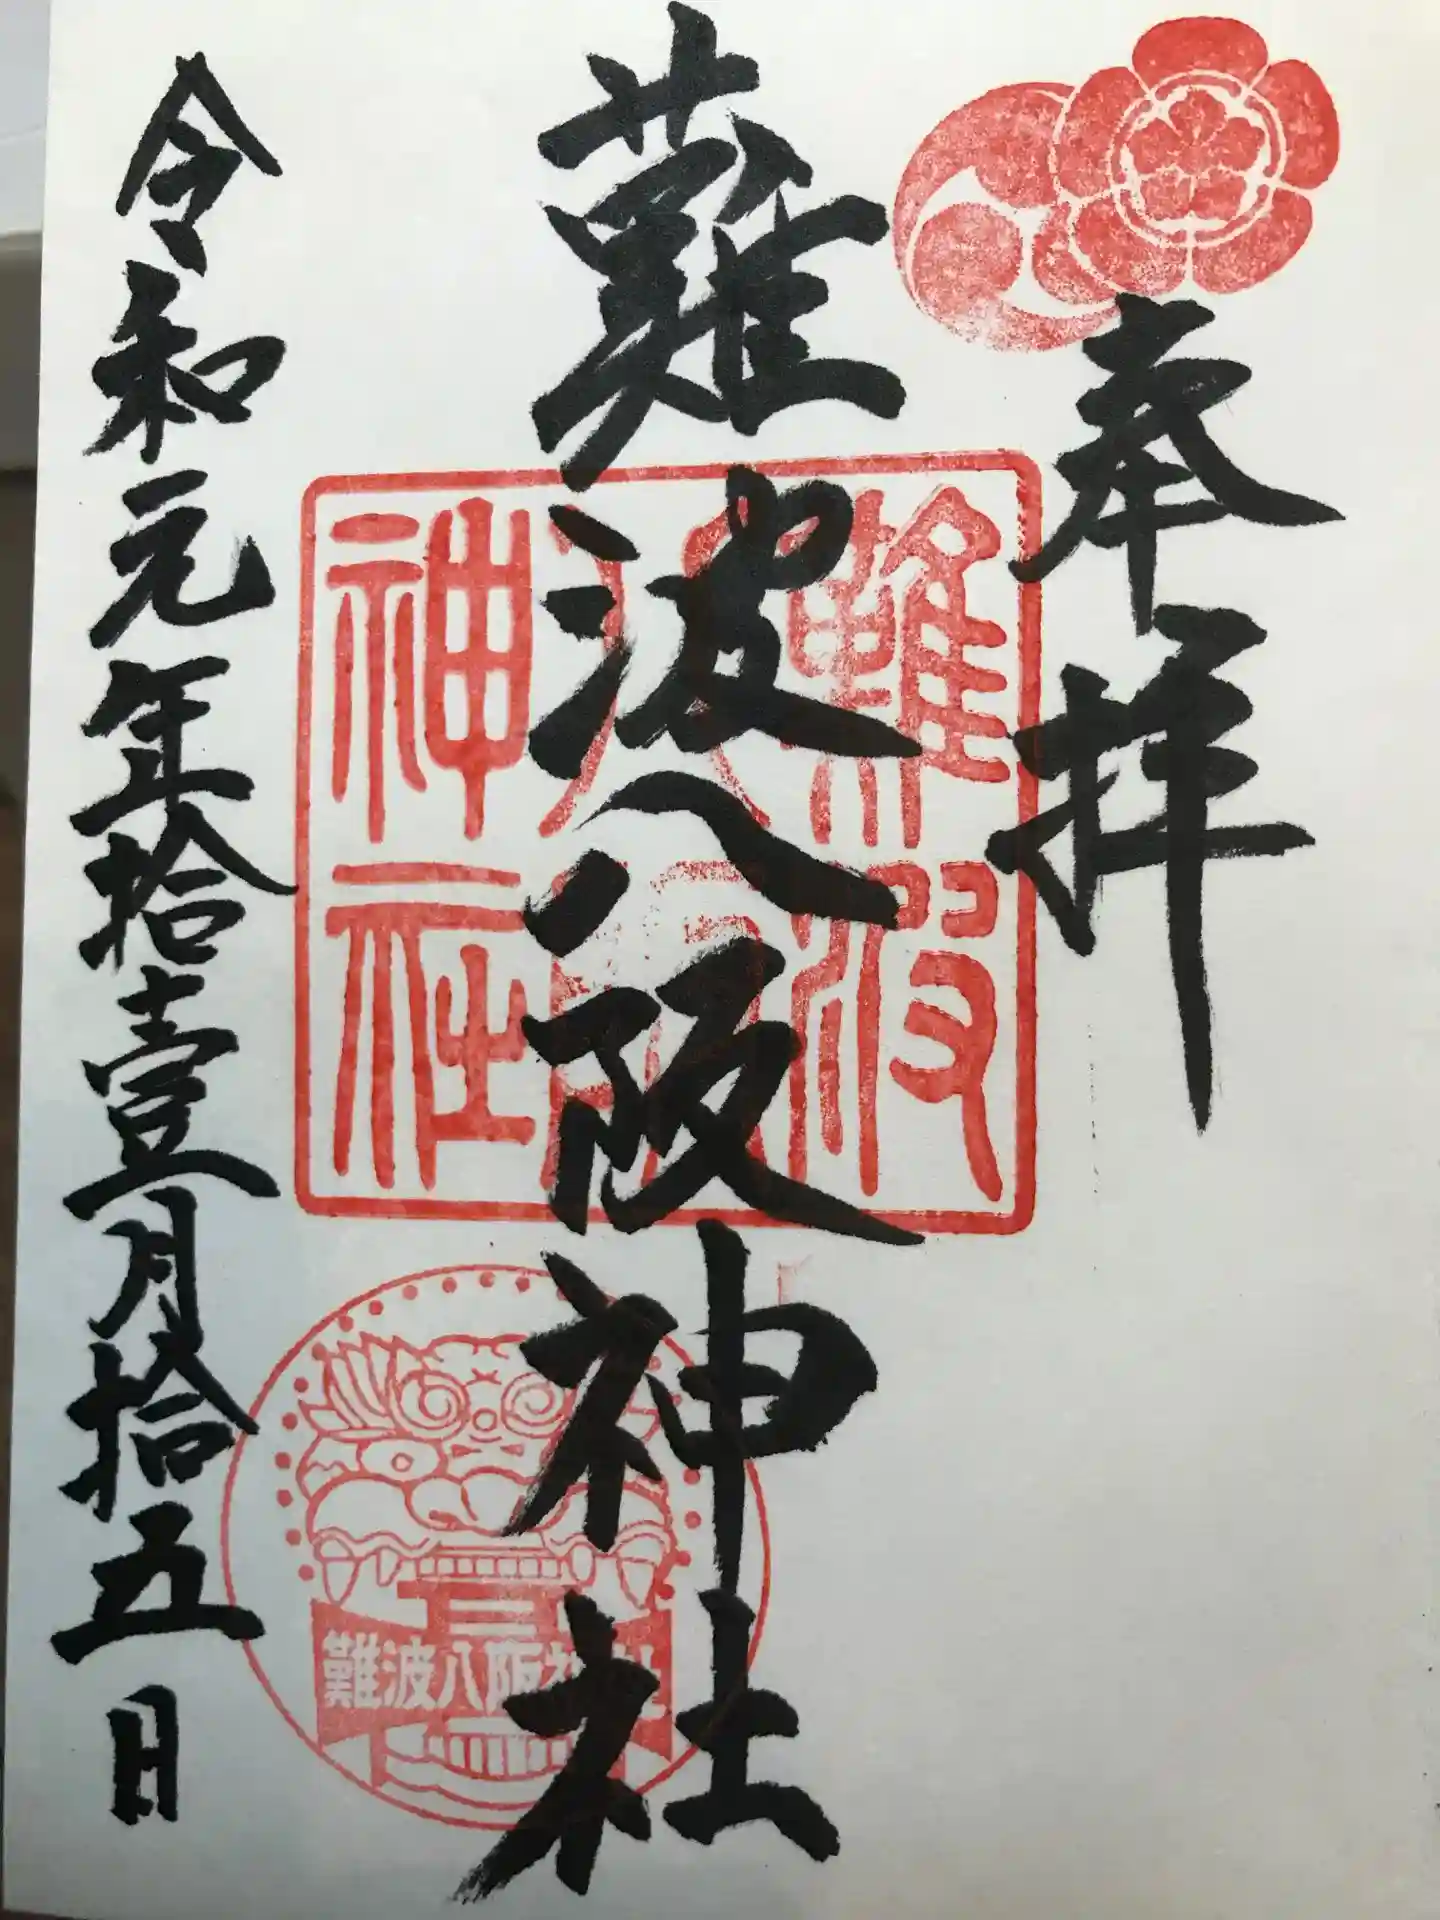 奉拝
難波八阪神社
難波
八阪
神社
難波八阪神社
令和元年拾壹月拾五日